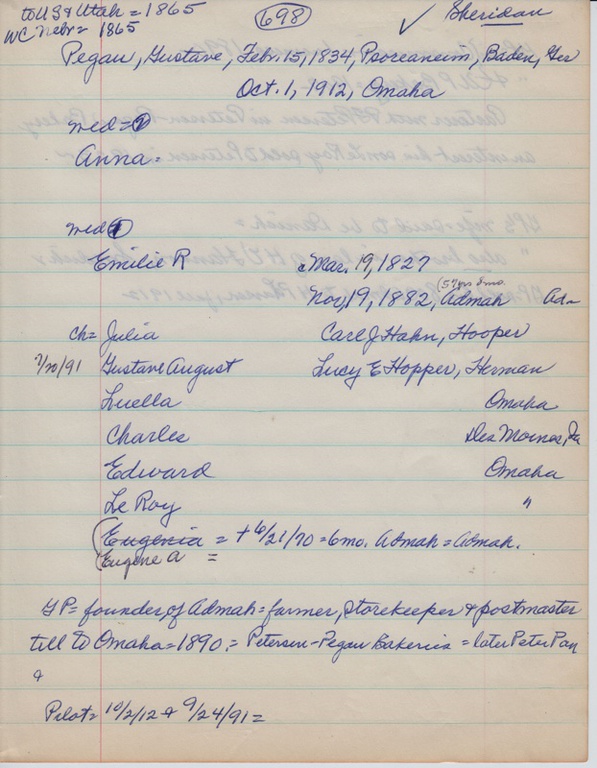 to US & Utah = 1865
WC Nebr = 1865
698
✓ Sheridan
Pegau, Gustave, Febr. 15, 1834, Psoreaneim, Baden, Ger
Oct. 1, 1912, Omaha
wed = 2
Anna =
wed 1
Emilie R Mar. 19, 1827
(55 yrs 8 mo.
Nov. 19, 1882, Admah Adm
ch = Julia Carl J Hahn, Hooper
7/20/91 Gustave August Lucy E Hopper, Herman
Luella Omaha
Charles Des Moines, Ia
Edward Omaha
Le Roy "
(Eugenia = + 6/21/70 = 6 mo. Admah = Admah.
(Eugene A =
GP = founder of Admah = farmer, storekeeper & postmaster
till to Omaha = 1890. = Petersen-Pegau Bakeries = later Peter Pan
&
Pilot = 10/2/12 & 9/24/91 =